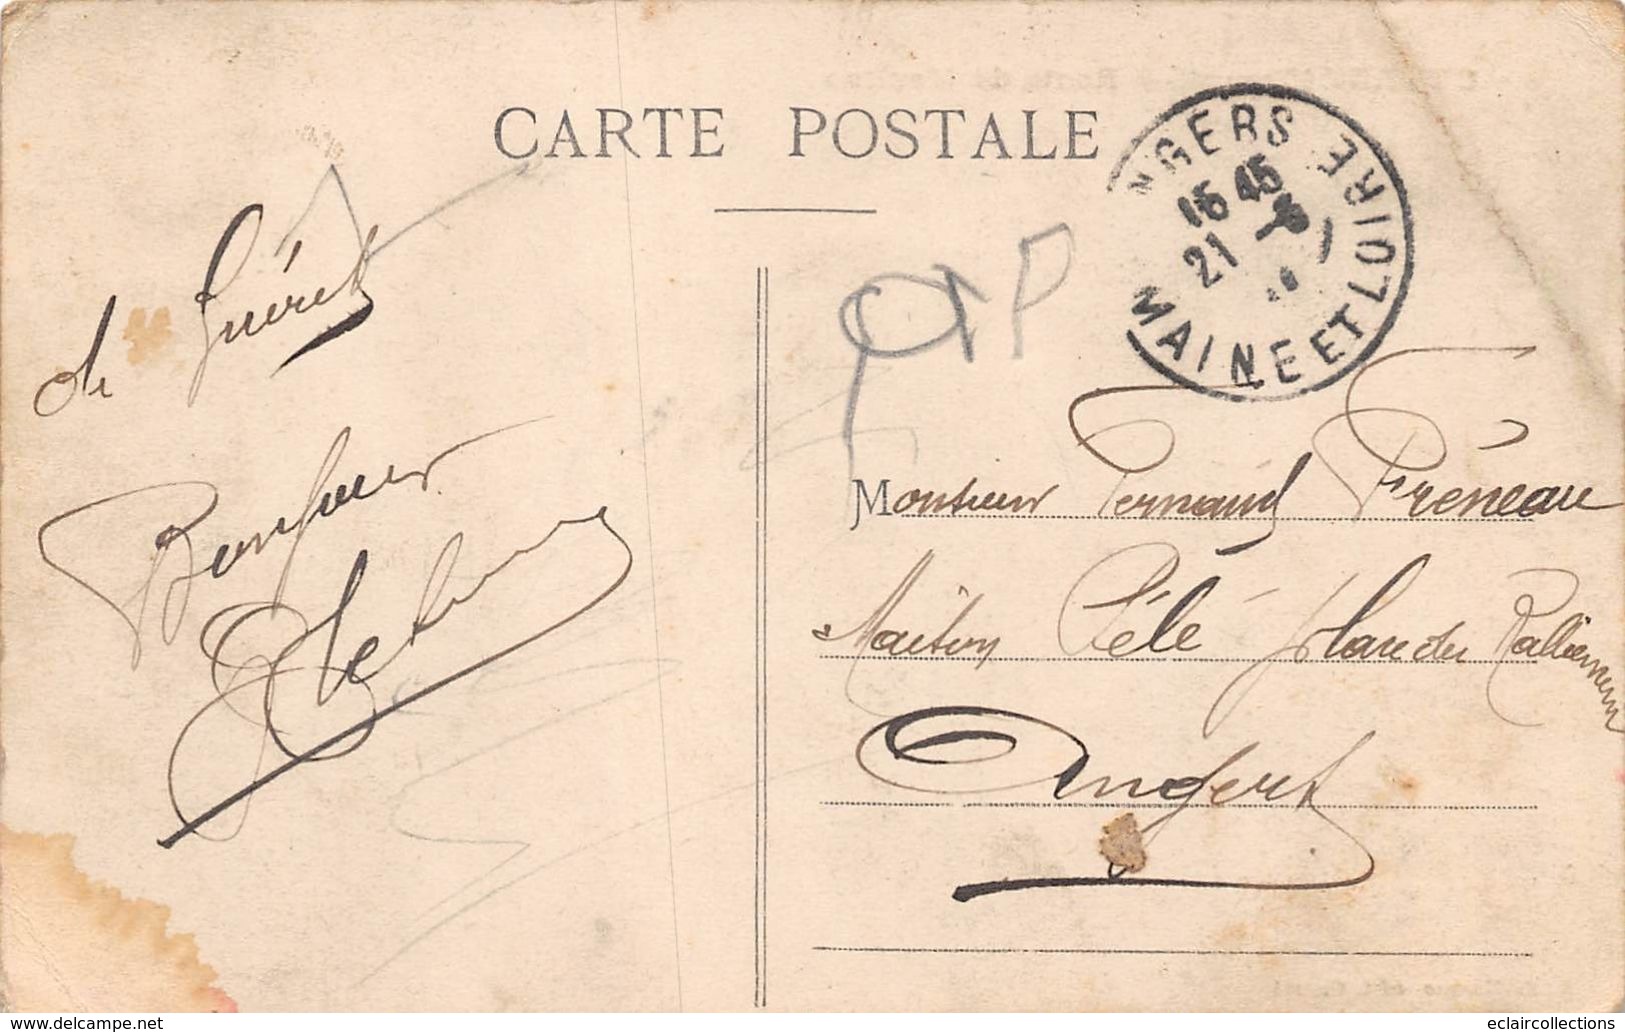 CARTE POSTALE
NGERS
15 45
21 -5
MAINE ET LOIRE
de Guéret
Bonjour
OTP
Monsieur Fernand Fréneau
Maison Pélé Place du Ralliement
Angers
www.delcampe.net
eclaircollections